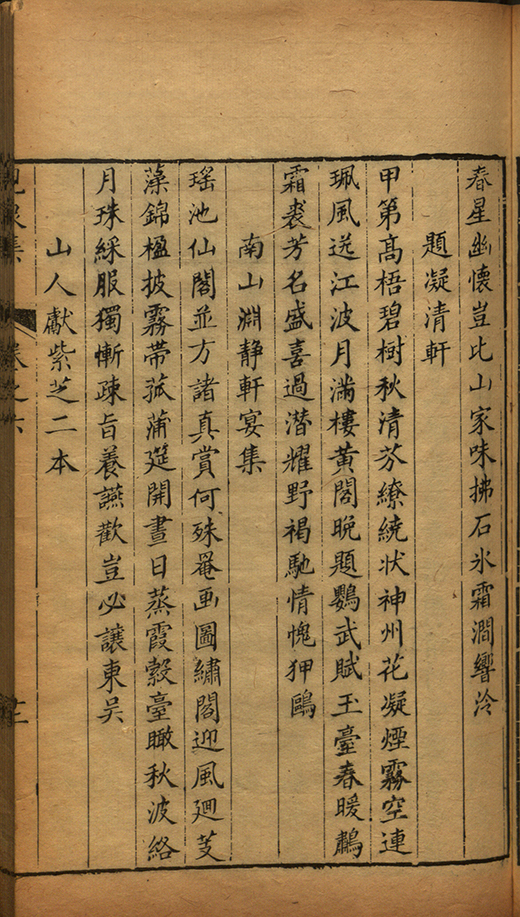 春星幽懷豈比山家味拂石氷霜澗響泠
題凝清軒
甲第高梧碧樹秋清芬繚繞狀神州花凝煙霧空連
珮風送江波月滿樓黃閣晚題鸚武賦玉臺春暖鷫
霜裘芳名盛喜過潛耀野褐馳情愧狎鷗
南山淵静軒宴集
瑤池仙閣並方諸真賞何殊罨画圖繡閣迎風迴芰
藻錦楹披霧帶菰蒲筵開晝日蒸霞縠臺瞰秋波絡
月珠綵服獨慚疎旨養讌歡豈必讓東吳
山人獻紫芝二本
集
卷之六
十二